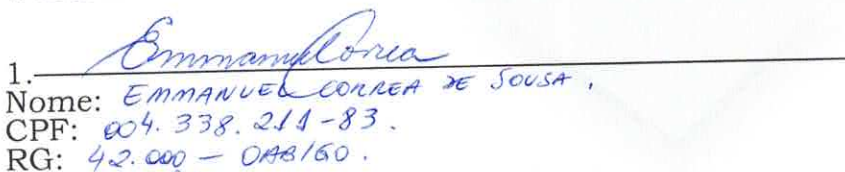 Emmanuel Correa
1.
Nome: EMMANUEL CORREA DE SOUSA.
CPF: 004.338.211-83.
RG: 42.000 - OAB/GO.